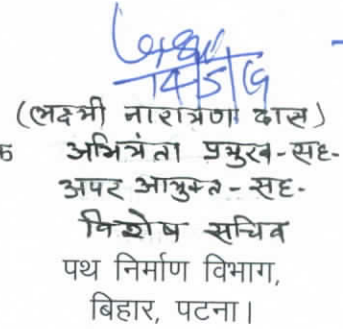 14/5/19
(लक्ष्मी नारायण दास)
अभियंता प्रमुख-सह-
अपर आयुक्त-सह-
विशेष सचिव
पथ निर्माण विभाग,
बिहार, पटना।